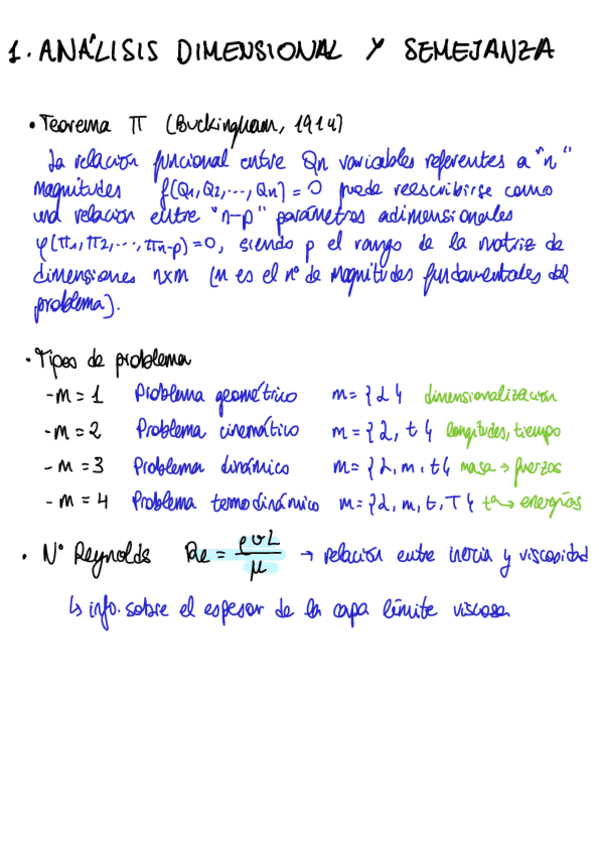 1. ANÁLISIS DIMENSIONAL Y SEMEJANZA
• Teorema π (Buckingham, 1914)
La relación funcional entre Qn variables referentes a "n"
magnitudes f(Q1, Q2, ..., Qn) = 0 puede reescribirse como
una relación entre "n-p" parámetros adimensionales
φ(π1, π2, ..., πn-p) = 0, siendo p el rango de la matriz de
dimensiones n×m (m es el nº de magnitudes fundamentales del
problema).
• Tipos de problema
- m = 1 Problema geométrico m = {L} dimensionalización
- m = 2 Problema cinemático m = {L, t} longitudes, tiempo
- m = 3 Problema dinámico m = {L, m, t} masa → fuerzas
- m = 4 Problema termodinámico m = {L, m, t, T} tª → energías
• Nº Reynolds Re = ρvL / μ → relación entre inercia y viscosidad
↳ info. sobre el espesor de la capa límite viscosa